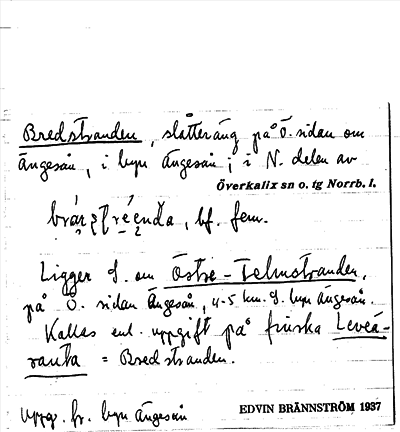 Bredstranden, slåtteräng på Ö. sidan om
Ängesån, i byn Ängesån; i N. delen av
Överkalix sn o. tg Norrb. l.
bf. fem.
Ligger S. om Östre-Telmstranden,
på Ö. sidan Ängesån, 4-5 km. S. byn Ängesån.
Kallas enl. uppgift på finska Leveä-
ranta = Bredstranden.
Uppg. fr. byn Ängesån
EDVIN BRÄNNSTRÖM 1937